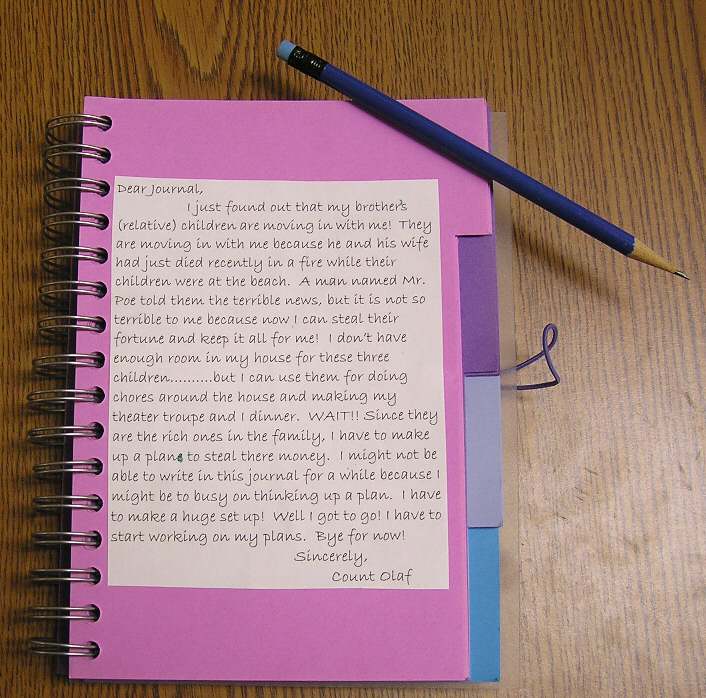 Dear Journal,
I just found out that my brother's
(relative) children are moving in with me! They
are moving in with me because he and his wife
had just died recently in a fire while their
children were at the beach. A man named Mr.
Poe told them the terrible news, but it is not so
terrible to me because now I can steal their
fortune and keep it all for me! I don't have
enough room in my house for these three
children..........but I can use them for doing
chores around the house and making my
theater troupe and I dinner. WAIT!! Since they
are the rich ones in the family, I have to make
up a plan to steal there money. I might not be
able to write in this journal for a while because I
might be to busy on thinking up a plan. I have
to make a huge set up! Well I got to go! I have to
start working on my plans. Bye for now!
Sincerely,
Count Olaf